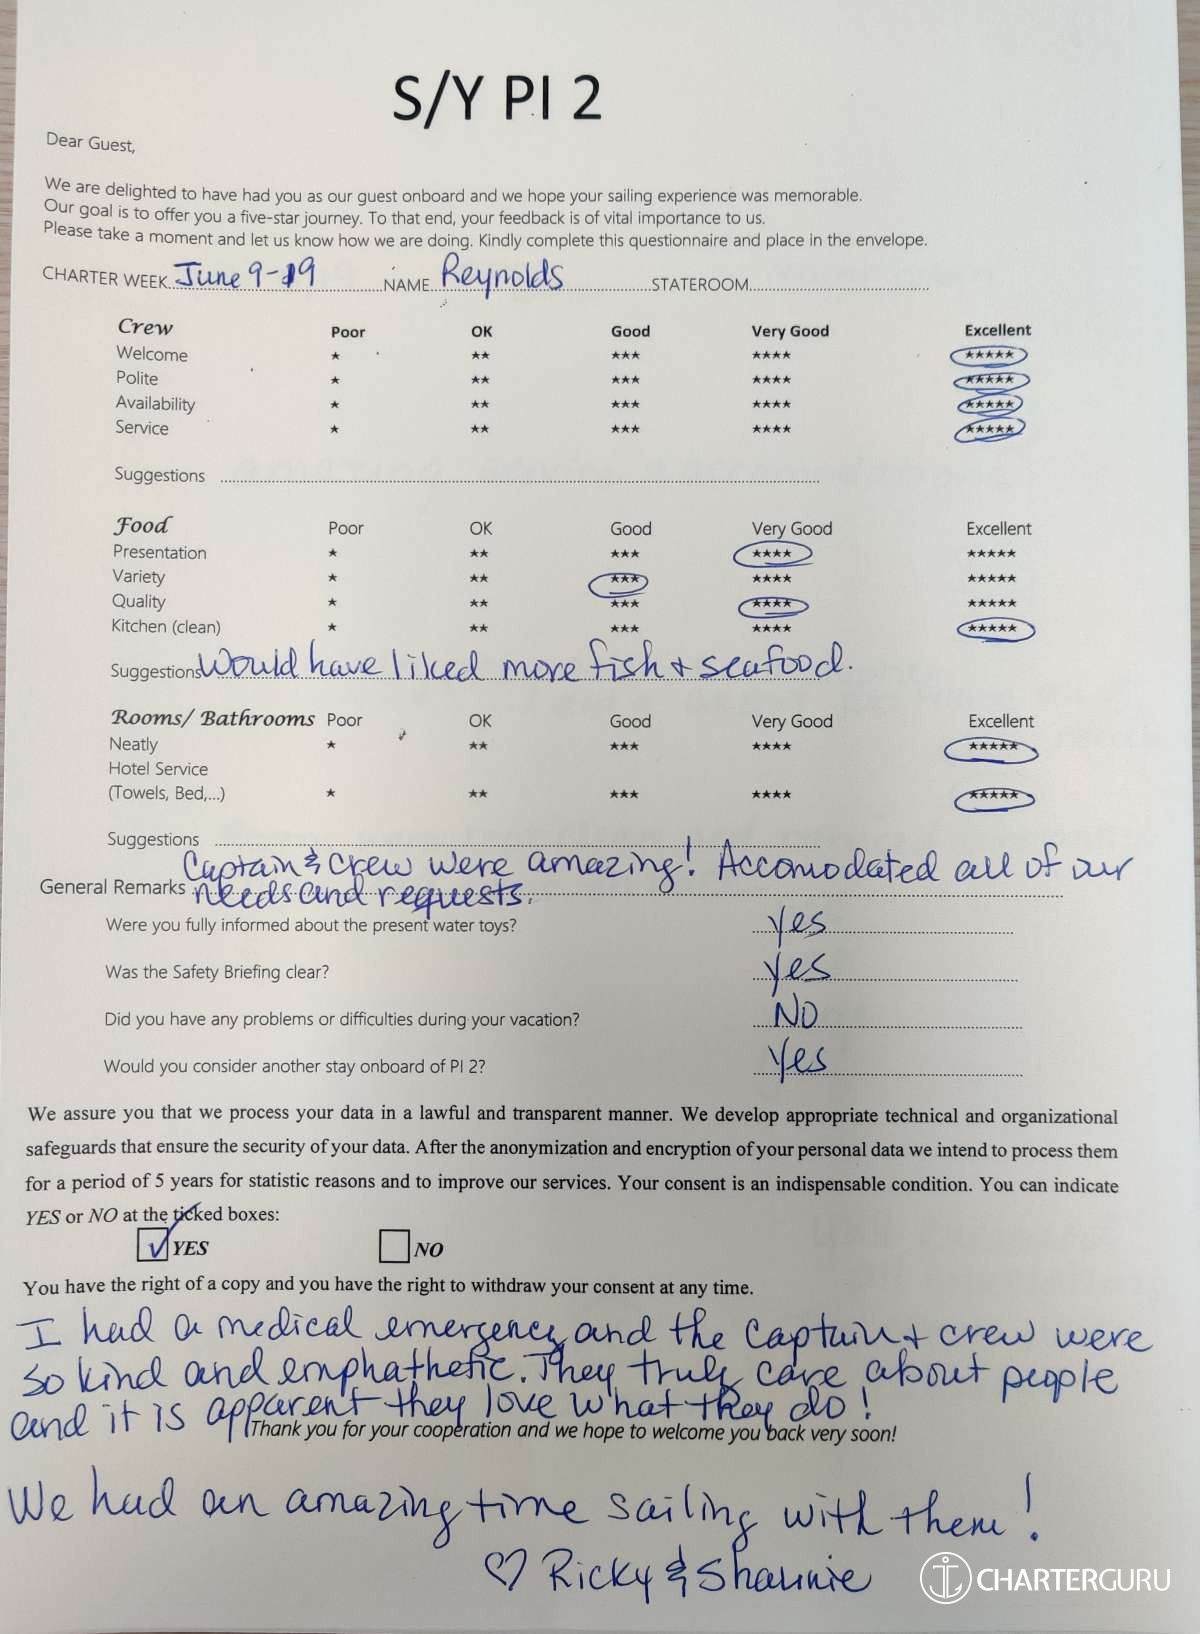 S/Y PI 2
Dear Guest,
We are delighted to have had you as our guest onboard and we hope your sailing experience was memorable.
Our goal is to offer you a five-star journey. To that end, your feedback is of vital importance to us.
Please take a moment and let us know how we are doing. Kindly complete this questionnaire and place in the envelope.
CHARTER WEEK June 9-19 NAME Reynolds STATEROOM
Crew Poor OK Good Very Good Excellent
Welcome ★ ★★ ★★★ ★★★★ ★★★★★
Polite ★ ★★ ★★★ ★★★★ ★★★★★
Availability ★ ★★ ★★★ ★★★★ ★★★★★
Service ★ ★★ ★★★ ★★★★ ★★★★★
Suggestions
Food Poor OK Good Very Good Excellent
Presentation ★ ★★ ★★★ ★★★★ ★★★★★
Variety ★ ★★ ★★★ ★★★★ ★★★★★
Quality ★ ★★ ★★★ ★★★★ ★★★★★
Kitchen (clean) ★ ★★ ★★★ ★★★★ ★★★★★
Suggestions Would have liked more fish + seafood.
Rooms/ Bathrooms Poor OK Good Very Good Excellent
Neatly ★ ★★ ★★★ ★★★★ ★★★★★
Hotel Service
(Towels, Bed,...) ★ ★★ ★★★ ★★★★ ★★★★★
Suggestions
Captain & crew were amazing! Accomodated all of our
General Remarks needs and requests.
Were you fully informed about the present water toys? Yes
Was the Safety Briefing clear? Yes
Did you have any problems or difficulties during your vacation? No
Would you consider another stay onboard of PI 2? Yes
We assure you that we process your data in a lawful and transparent manner. We develop appropriate technical and organizational
safeguards that ensure the security of your data. After the anonymization and encryption of your personal data we intend to process them
for a period of 5 years for statistic reasons and to improve our services. Your consent is an indispensable condition. You can indicate
YES or NO at the ticked boxes:
✓ YES NO
You have the right of a copy and you have the right to withdraw your consent at any time.
I had a medical emergency and the Captain + crew were
so kind and emphathetic. They truly care about people
and it is apparent they love what they do!
Thank you for your cooperation and we hope to welcome you back very soon!
We had an amazing time sailing with them!
♡ Ricky & Shaunie
CHARTERGURU